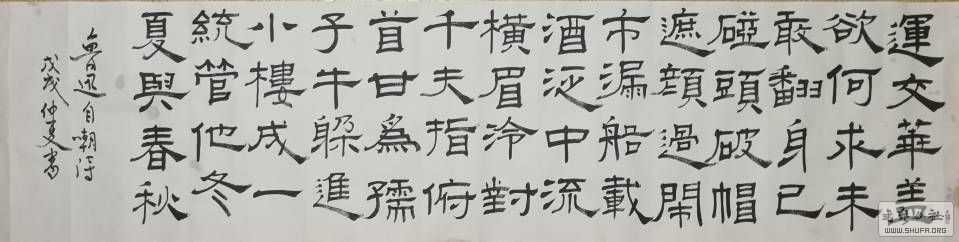 運交華盖
欲何求未
敢翻身已
碰頭破帽
遮顔過鬧
市漏船載
酒泛中流
橫眉冷對
千夫指俯
首甘為孺
子牛躲進
小樓成一
統管他冬
夏與春秋
魯迅自嘲诗
戊戌仲夏書
WWW.SHUFA.ORG